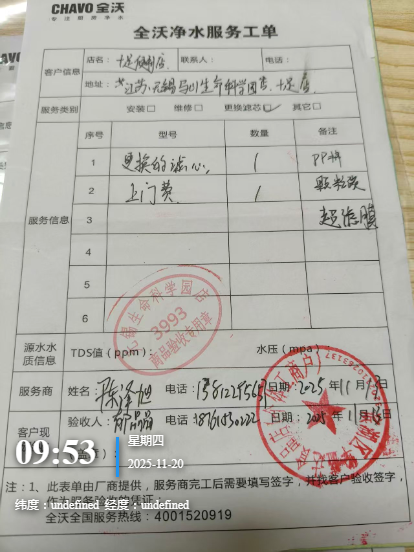 CHAVO全沃
专注银质净水
全沃净水服务工单
客户信息
店名：十足便利店 联系人： 电话：
地址：江苏无锡马山生命科学园 十足店
服务类别 安装□ 维修□ 更换滤芯☑ 其它□
服务信息
序号 型号 数量 备注
1 更换的滤芯 1 PP棉
2 上门费 1 颗粒炭
3 超滤膜
4
5
6
无锡生命科学园店
3993
商品验收专用章
源水水质信息 TDS值（ppm）： 水压（mpa）
服务商 姓名： 电话： 日期：2025 11月
客户现 验收人： 电话：18761030222 日期：2025 11月
09:53
星期四
2025-11-20
注：1、此表单由厂商提供，服务商完工后需要填写签字，并找客户验收签字，
作为服务验收的凭证；
纬度：undefined 经度：undefined
全沃全国服务热线：4001520919